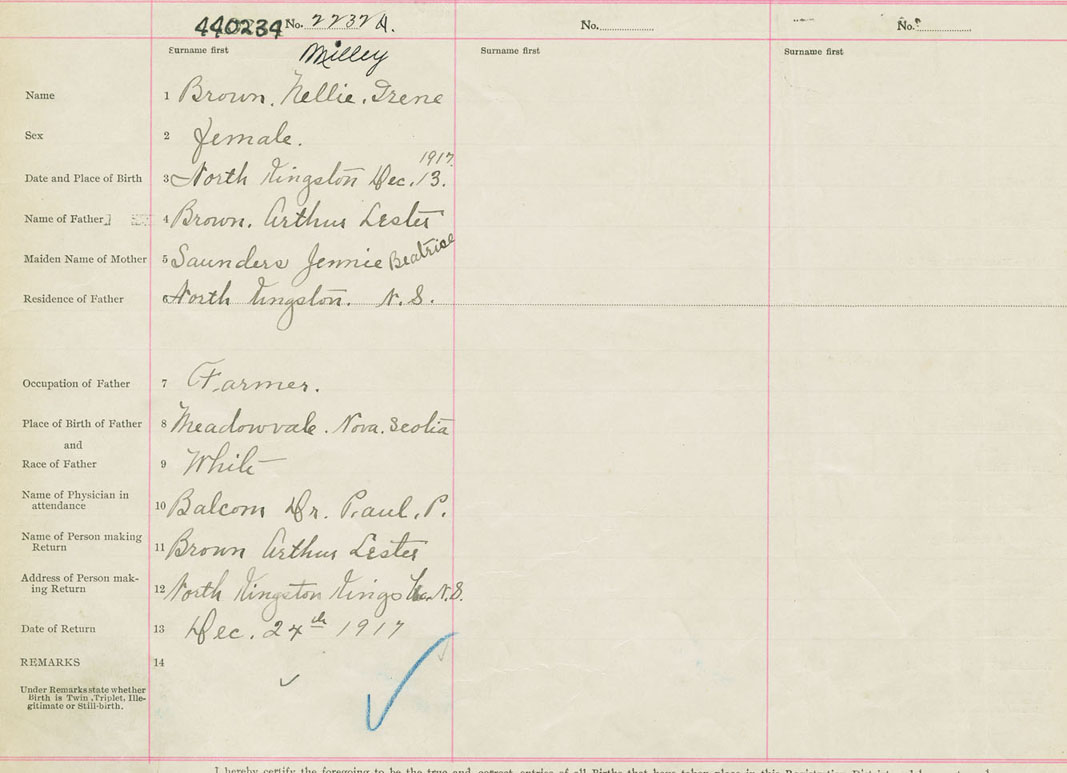 440234 No. 22324. No. No.
Surname first Surname first Surname first
Milley
Name 1 Brown. Nellie. Irene
Sex 2 female.
1917.
Date and Place of Birth 3 North Kingston Dec. 13.
Name of Father 4 Brown. Arthur Lester
Maiden Name of Mother 5 Saunders Jennie Beatrice
Residence of Father 6 North Kingston. N.S.
Occupation of Father 7 Farmer.
Place of Birth of Father 8 Meadowvale. Nova. Scotia
and
Race of Father 9 White
Name of Physician in
attendance 10 Balcom Dr. Paul. P.
Name of Person making
Return 11 Brown Arthur Lester
Address of Person mak-
ing Return 12 North Kingston Kings Co. N.S.
Date of Return 13 Dec. 24th 1917
REMARKS 14
Under Remarks state whether
Birth is Twin, Triplet, Ille-
gitimate or Still-birth.
I hereby certify the foregoing to be the true and correct entries of all Births that have taken place in this Registration District